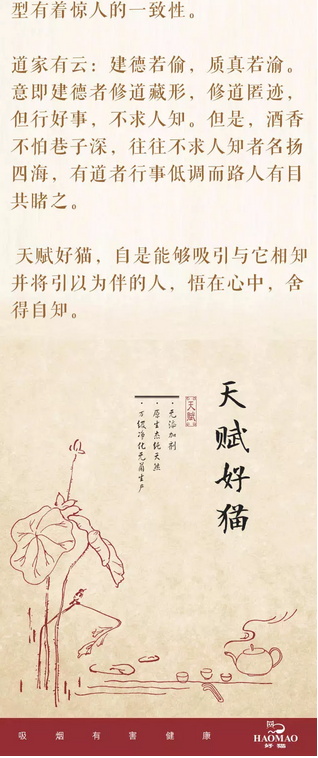 型有着惊人的一致性。
道家有云：建德若偷，质真若渝。
意即建德者修道藏形，修道匿迹，
但行好事，不求人知。但是，酒香
不怕巷子深，往往不求人知者名扬
四海，有道者行事低调而路人有目
共睹之。
天赋好猫，自是能够吸引与它相知
并将引以为伴的人，悟在心中，舍
得自知。
天赋好猫
天赋
·无添加剂
·原生态纯天然
·万级净化无菌生产
吸烟有害健康
HAOMAO
好猫